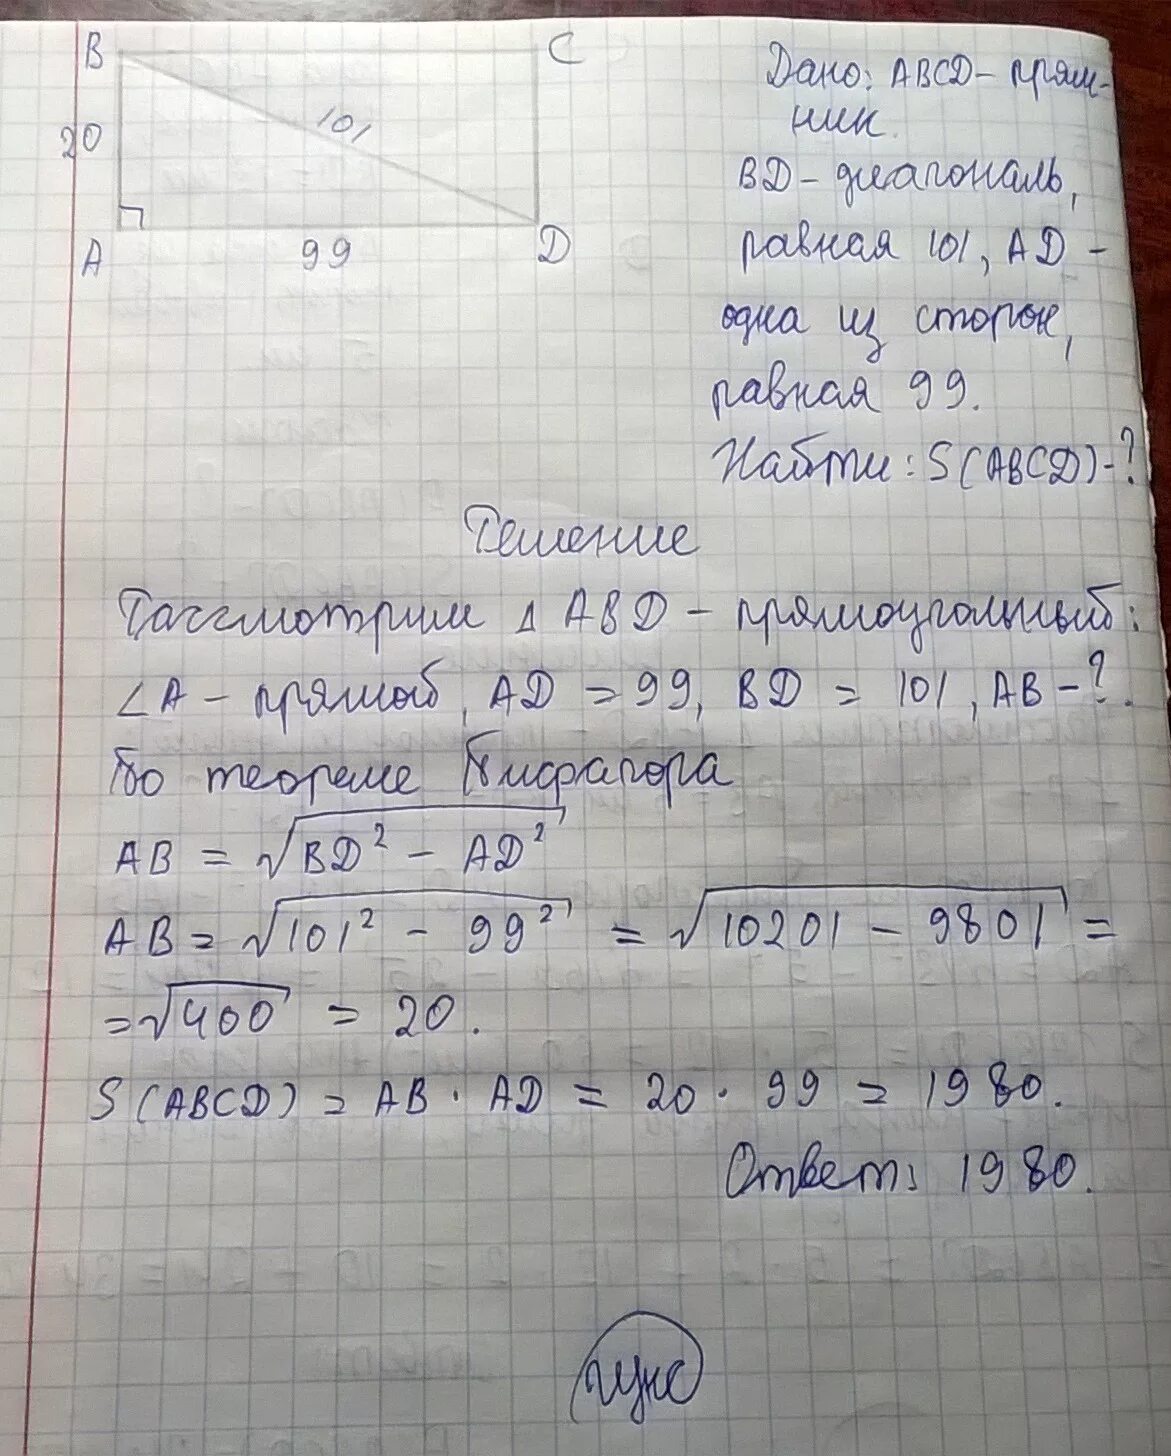 B
C
20
101
A
99
D
Дано: ABCD – прям-
ник.
BD – диагональ,
равная 101, AD –
одна из сторон,
равная 99.
Найти: S(ABCD) - ?
Решение
Рассмотрим Δ ABD – прямоугольный:
∠A – прямой, AD = 99, BD = 101, AB - ?.
По теореме Пифагора
AB = √BD² – AD²
AB = √101² – 99² = √10201 – 9801 =
= √400 = 20.
S(ABCD) = AB · AD = 20 · 99 = 1980.
Ответ: 1980.